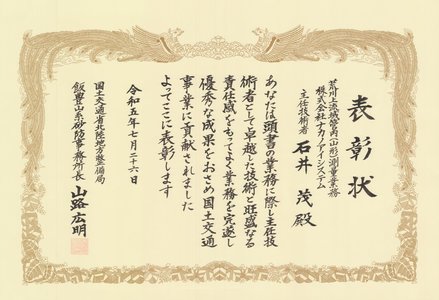 表彰状
荒川上流域管内(山形)測量業務
株式会社ナカノアイシステム
主任技術者
石井 茂 殿
あなたは頭書の業務に際し主任技
術者として卓越した技術と旺盛なる
責任感をもってよく業務を完遂し
優秀な成果をおさめ国土交通
事業に貢献されました
よってここに表彰します
令和五年七月二十六日
国土交通省北陸地方整備局
飯豊山系砂防事務所長 山路広明